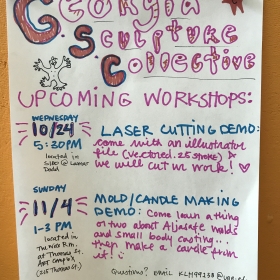 Georgia
Sculpture
Collective
UPCOMING WORKSHOPS:
WEDNESDAY
10/24
5:30PM
located in
S180 @ Lamar
Dodd
LASER CUTTING DEMO:
come with an illustrator
file (vectored .25 stroke) &
we will cut ur work!
SUNDAY
11/4
1-3 PM
located in
The Wax Rm.
at Thomas St.
Art Complex
(215 Thomas St.)
MOLD/CANDLE MAKING
DEMO: Come learn a thing
or two about Aljasafe molds
and small body casting...
then make a candle from
it!
Questions? email KLM99238@uga.edu